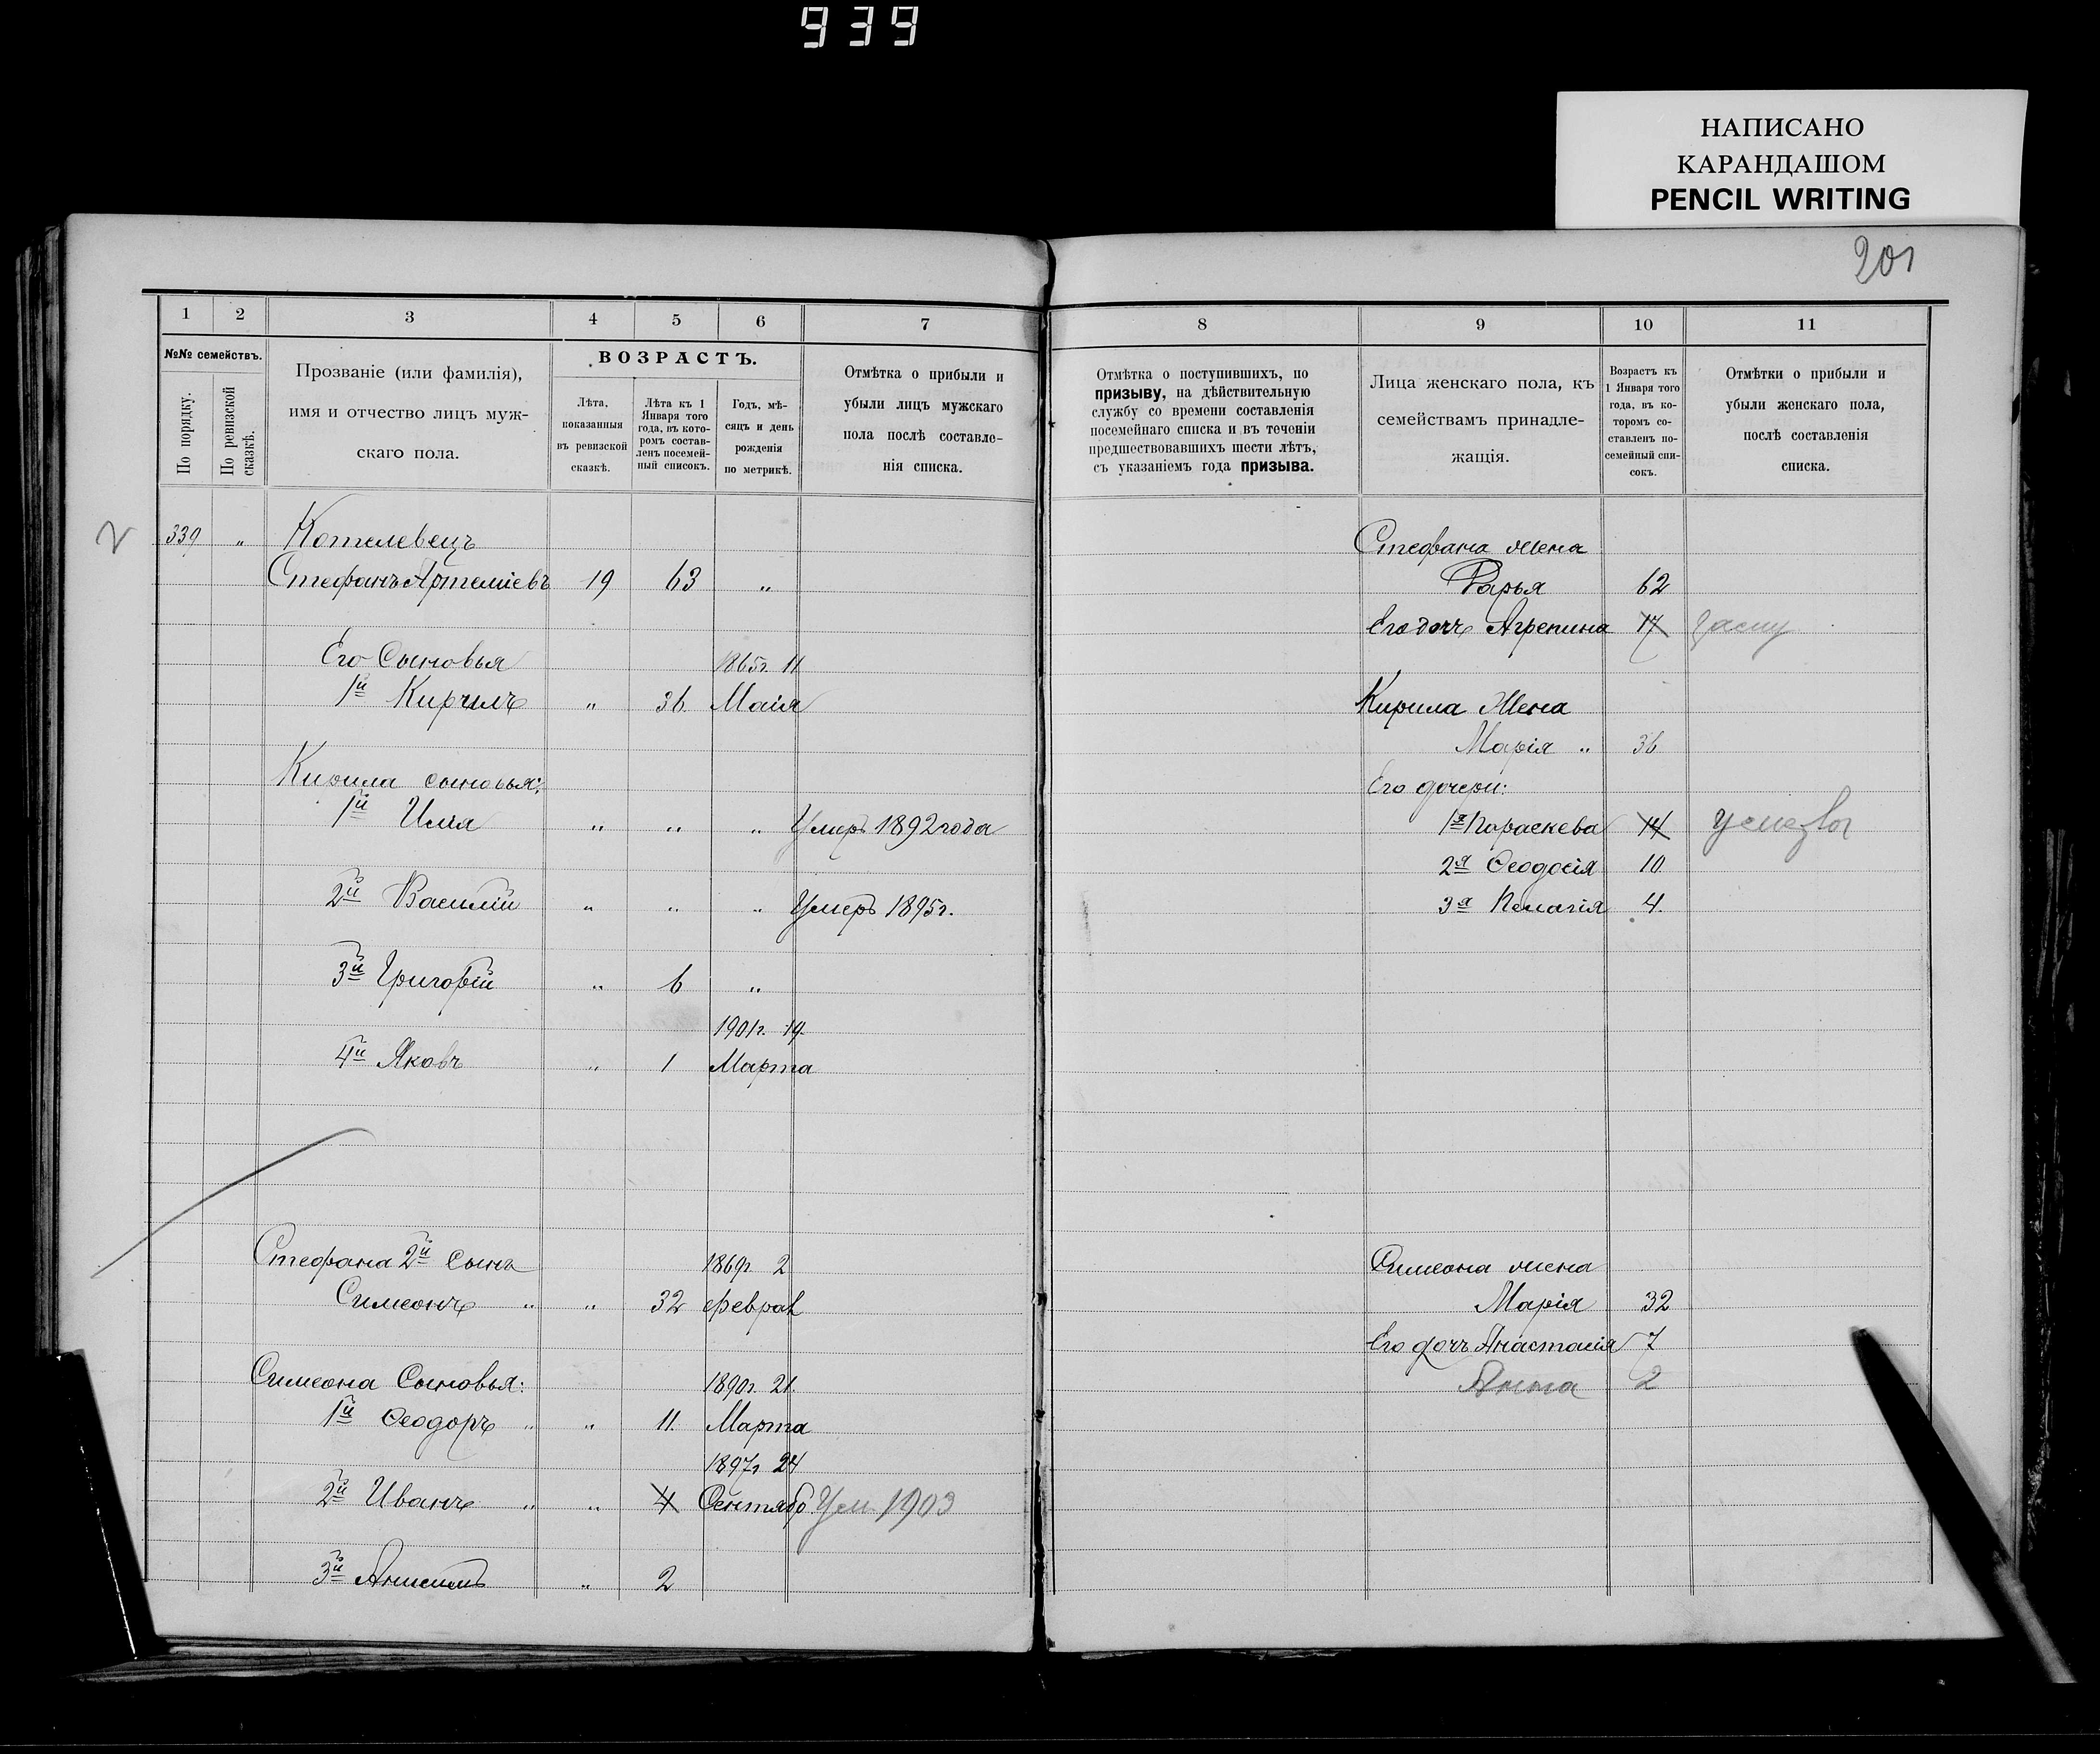 939
НАПИСАНО
КАРАНДАШОМ
PENCIL WRITING
201
1 2 3 4 5 6 7
№№ семействъ.
По порядку.
По ревизской сказкѣ.
Прозваніе (или фамилія),
имя и отчество лицъ муж-
скаго пола.
ВОЗРАСТЪ.
Лѣта,
показанныя
въ ревизской
сказкѣ.
Лѣта къ 1
Января того
года, въ кото-
ромъ состав-
ленъ посемей-
ный списокъ.
Годъ, мѣ-
сяцъ и день
рожденія
по метрикѣ.
Отмѣтка о прибыли и
убыли лицъ мужскаго
пола послѣ составле-
нія списка.
339 " Котелевецъ
Стефанъ Артеміевъ 19 63 "
Его Сыновья 1865г. 11
1й Кирилъ " 36. Маія
Кирила сыновья:
1й Илія " " " Умеръ 1892 года
2й Василій " " " Умеръ 1895г.
3й Григорій " 6 "
1901г. 19.
4й Яковъ " 1 Марта
Стефана 2й Сынъ 1869г 2
Симеонъ " " 32 Феврал
Симеона Сыновья: 1890г. 21.
1й Ѳеодоръ " " 11. Марта
1897г 24
2й Иванъ " " 4 Сентябр Ум. 1903
3й Анисимъ " 2
8 9 10 11
Отмѣтка о поступившихъ, по
призыву, на дѣйствительную
службу со времени составленія
посемейнаго списка и въ теченіи
предшествовавшихъ шести лѣтъ,
съ указаніемъ года призыва.
Лица женскаго пола, къ
семействамъ принадле-
жащія.
Возрастъ къ
1 Января того
года, въ ко-
торомъ со-
ставленъ по-
семейный спи-
сокъ.
Отмѣтки о прибыли и
убыли женскаго пола,
послѣ составленія
списка.
Стефана жена
Дарья 62
Его дочь Агрепина 17
Кирила Жена
Марія " 36
Его дочери:
1я Параскева 14
2я Ѳеодосія 10
3я Пелагія 4.
Симеона жена
Марія 32
Его дочь Анастасія 7
Анна 2